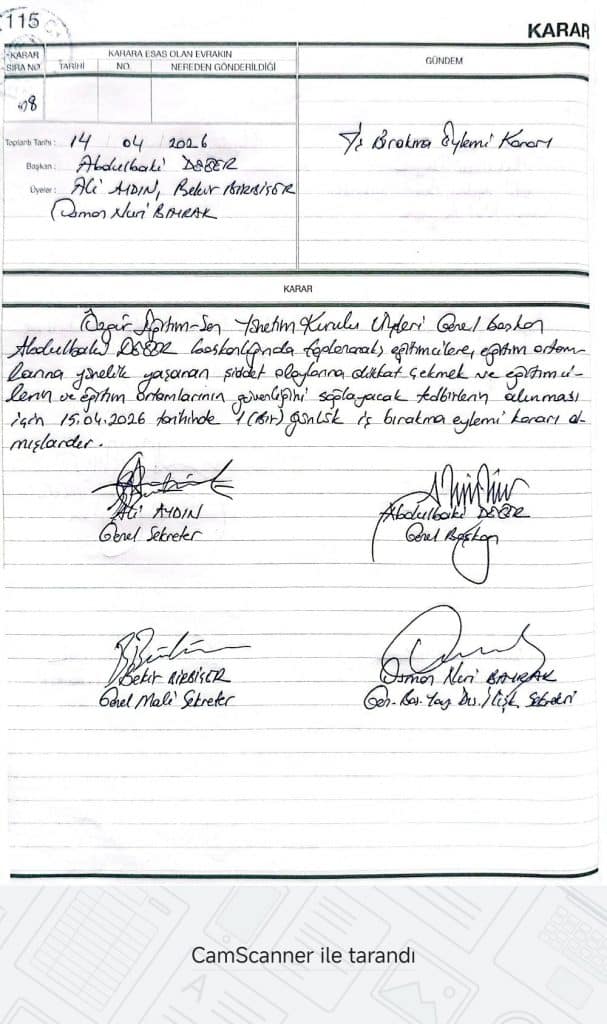 115
KARAR
KARAR
SIRA NO
TARİHİ
KARARA ESAS OLAN EVRAKIN
NO.
NEREDEN GÖNDERİLDİĞİ
GÜNDEM
08
Toplantı Tarihi : 14 / 04 / 2026
Başkan : Abdulbaki DEĞER
Üyeler : Ali AYDIN, Bekir BİRBİÇER
Osman Nuri BAYRAK
İş Bırakma Eylemi Kararı
KARAR
Özgür Eğitim-Sen Yönetim Kurulu Üyeleri Genel başkan
Abdulbaki DEĞER başkanlığında toplanarak, eğitimcilere, eğitim ortam-
larına yönelik yaşanan şiddet olaylarına dikkat çekmek ve eğitimci-
lerin ve eğitim ortamlarının güvenliğini sağlayacak tedbirlerin alınması
için 15.04.2026 tarihinde 1 (Bir) günlük iş bırakma eylemi kararı al-
mışlardır.
Ali AYDIN
Genel Sekreter
Abdulbaki DEĞER
Genel Başkan
Bekir BİRBİÇER
Genel Mali Sekreter
Osman Nuri BAYRAK
Gen. Bas. Yay. Dış. İlişk. Sekreteri
CamScanner ile tarandı